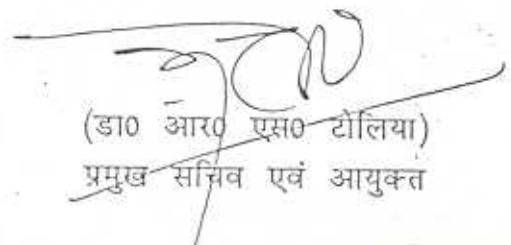 (डा0 आर0 एस0 टोलिया)
प्रमुख सचिव एवं आयुक्त